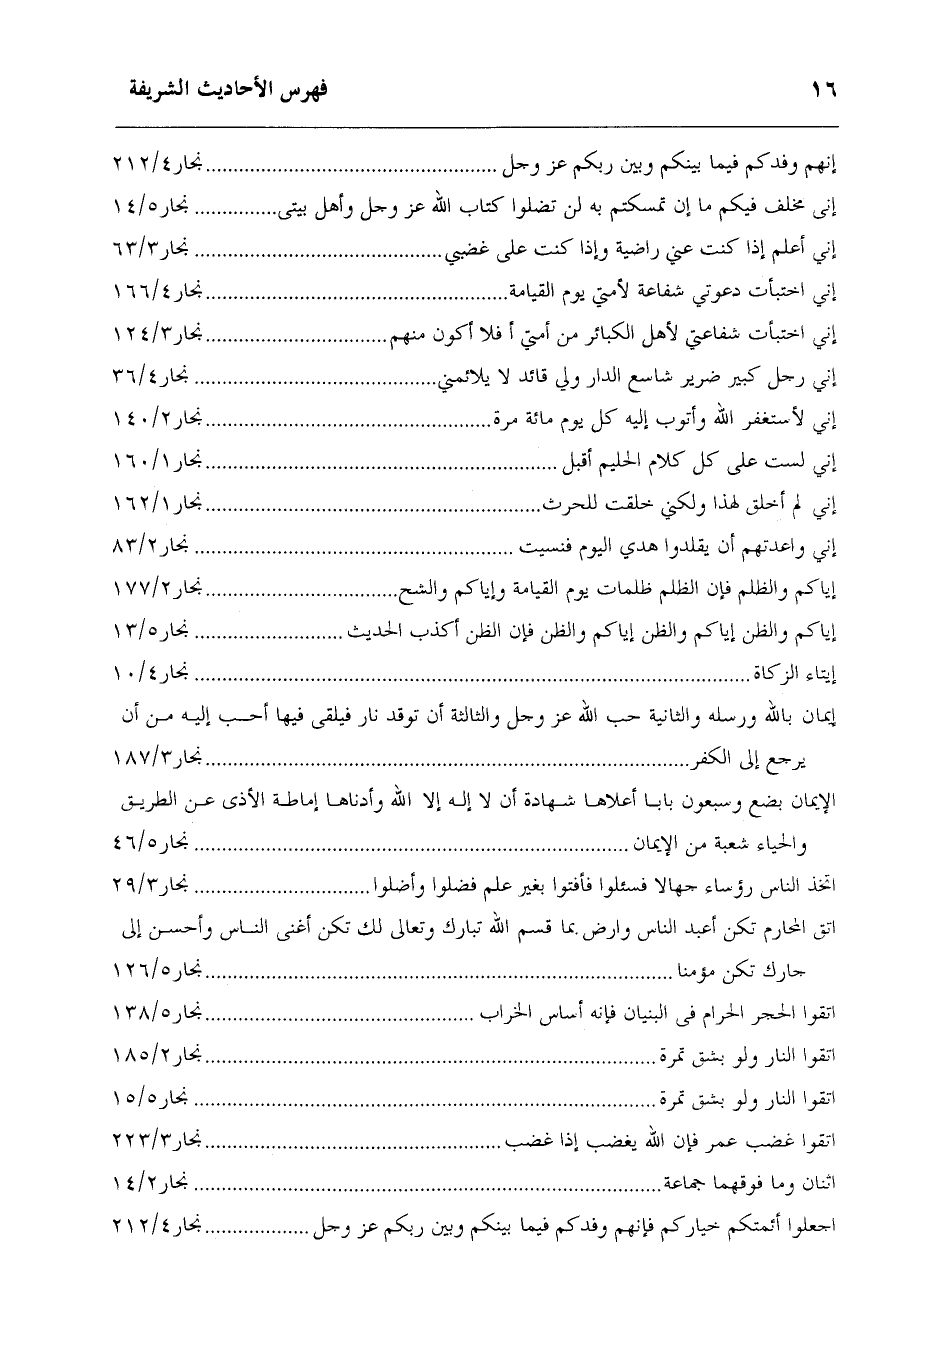 ١٦ فهرس الأحاديث الشريفة
إنهم وفدكم فيما بينكم وبين ربكم عز وجل ..... نجار٢١٢/٤
إنى مخلف فيكم ما إن تمسكتم به لن تضلوا كتاب الله عز وجل وأهل بيتى..... نجار١٤/٥
إني أعلم إذا كنت عني راضية وإذا كنت على غضبي..... نجار٦٣/٣
إني اختبأت دعوتي شفاعة لأمتي يوم القيامة..... نجار١٦٦/٤
إني اختبأت شفاعتي لأهل الكبائر من أمتي أ فلا أكون منهم..... نجار١٢٤/٣
إني رجل كبير ضرير شاسع الدار ولي قائد لا يلائمني..... نجار٣٦/٤
إني لأستغفر الله وأتوب إليه كل يوم مائة مرة..... نجار١٤٠/٢
إني لست على كل كلام الحليم أقبل ..... نجار١٦٠/١
إني لم أخلق لهذا ولكني خلقت للحرث..... نجار١٦٢/١
إني واعدتهم أن يقلدوا هدي اليوم فنسيت ..... نجار٨٣/٢
إياكم والظلم فإن الظلم ظلمات يوم القيامة وإياكم والشح..... نجار١٧٧/٢
إياكم والظن إياكم والظن إياكم والظن فإن الظن أكذب الحديث ..... نجار١٣/٥
إيتاء الزكاة ..... نجار١٠/٤
إيمان بالله ورسله والثانية حب الله عز وجل والثالثة أن توقد نار فيلقى فيها أحب إليه من أن
يرجع إلى الكفر..... نجار١٨٧/٣
الإيمان بضع وسبعون بابا أعلاها شهادة أن لا إله إلا الله وأدناها إماطة الأذى عن الطريق
والحياء شعبة من الإيمان ..... نجار٤٦/٥
اتخذ الناس رؤساء جهالا فسئلوا فأفتوا بغير علم فضلوا وأضلوا..... نجار٢٩/٣
اتق المحارم تكن أعبد الناس وارض بما قسم الله تبارك وتعالى لك تكن أغنى الناس وأحسن إلى
جارك تكن مؤمنا ..... نجار١٢٦/٥
اتقوا الحجر الحرام فى البنيان فإنه أساس الخراب ..... نجار١٣٨/٥
اتقوا النار ولو بشق تمرة ..... نجار١٨٥/٢
اتقوا النار ولو بشق تمرة ..... نجار١٥/٥
اتقوا غضب عمر فإن الله يغضب إذا غضب..... نجار٢٢٣/٣
اثنان وما فوقهما جماعة..... نجار١٤/٢
اجعلوا أئمتكم خياركم فإنهم وفدكم فيما بينكم وبين ربكم عز وجل ..... نجار٢١٢/٤